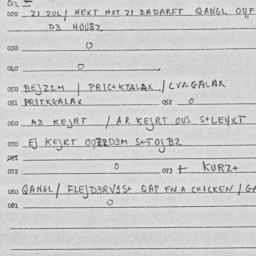 012
020 21 20L / NEXT HOT 21 DADARFT QANGL OUF
D3 HOUBZ
030 O
040 O
050 BEJZ1M | PRIC+KYALAX / CVAGALAX
051 PRITKEALAX 052 O
060 M3 KEJRT / AR KEJRT OUS S+LEYXT
070 EJ KEJRT OUZZD3M S+TOJBZ
071
072 O 073 + KURZ+
080 QANGL / FLEJD3RV1S+ QAP FNA CHICKEN / GA
081 O